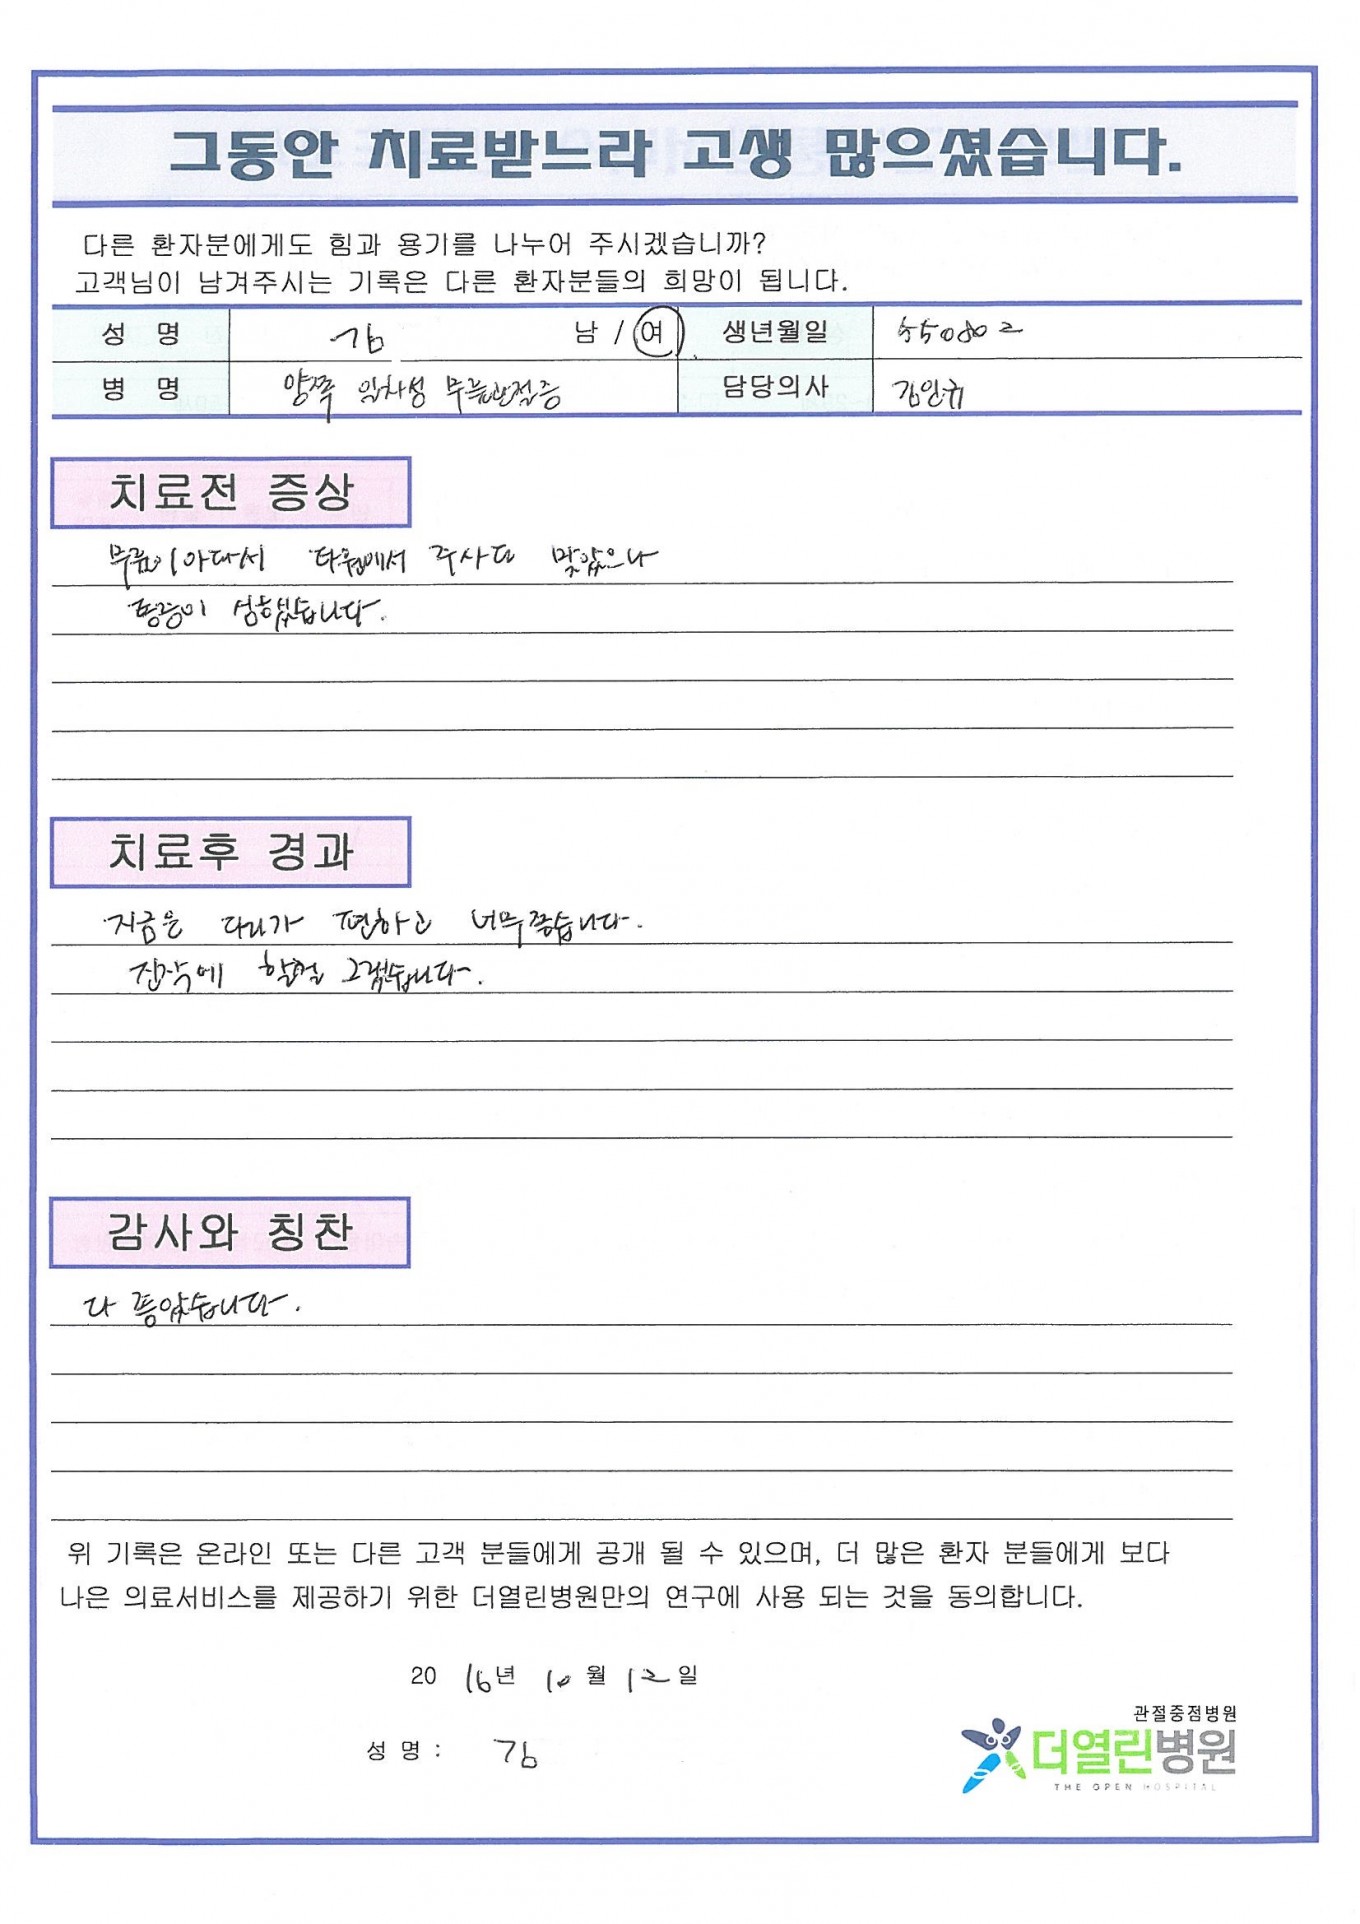 그동안 치료받느라 고생 많으셨습니다.
다른 환자분에게도 힘과 용기를 나누어 주시겠습니까?
고객님이 남겨주시는 기록은 다른 환자분들의 희망이 됩니다.
성 명 김 남 / 여 생년월일 550802
병 명 양쪽 일차성 무릎관절증 담당의사 김인규
치료전 증상
무릎이 아파서 타원에서 주사도 맞았으나
통증이 심했습니다.
치료후 경과
지금은 다리가 편하고 너무 좋습니다.
진작에 할걸 그랬습니다.
감사와 칭찬
다 좋았습니다.
위 기록은 온라인 또는 다른 고객 분들에게 공개 될 수 있으며, 더 많은 환자 분들에게 보다
나은 의료서비스를 제공하기 위한 더열린병원만의 연구에 사용 되는 것을 동의합니다.
20 16년 10월 12일
관절중점병원
성 명 : 김
더열린병원
THE OPEN HOSPITAL